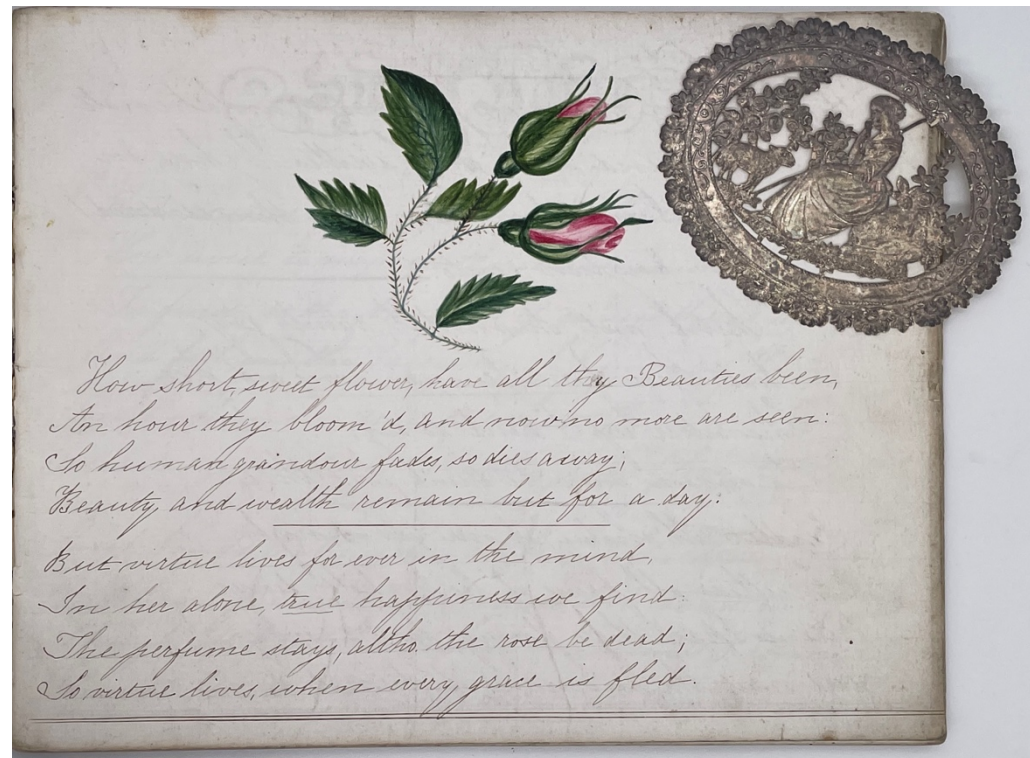 How short, sweet flower, have all thy Beauties been,
An hour they bloom'd, and now no more are seen:
So human grandour fades, so dies away;
Beauty, and wealth remain but for a day:
But virtue lives for ever in the mind,
In her alone, true happiness we find:
The perfume stays, altho. the rose be dead;
So virtue lives, when every, grace is fled.